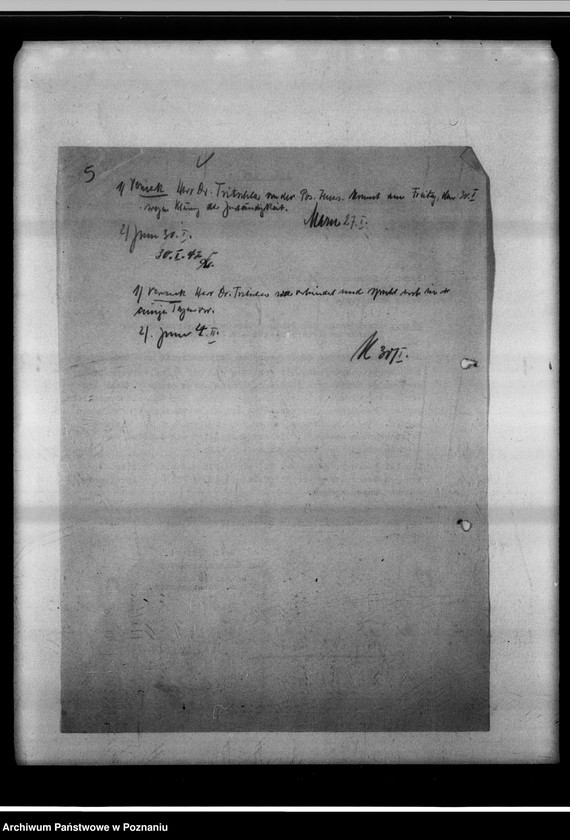 5
1) Vermerk Herr Dr. Tritschler von der Pos. kommt am Freitag, den 30. I
wegen Klärung der Zuständigkeit.
27. I.
2) zum 30. I.
30. I. 42
1) Vermerk Herr Dr. Tritschler verhindert und spricht erst in
einige Tagen vor.
2). zum 4. II.
M 30/I.
Archiwum Państwowe w Poznaniu